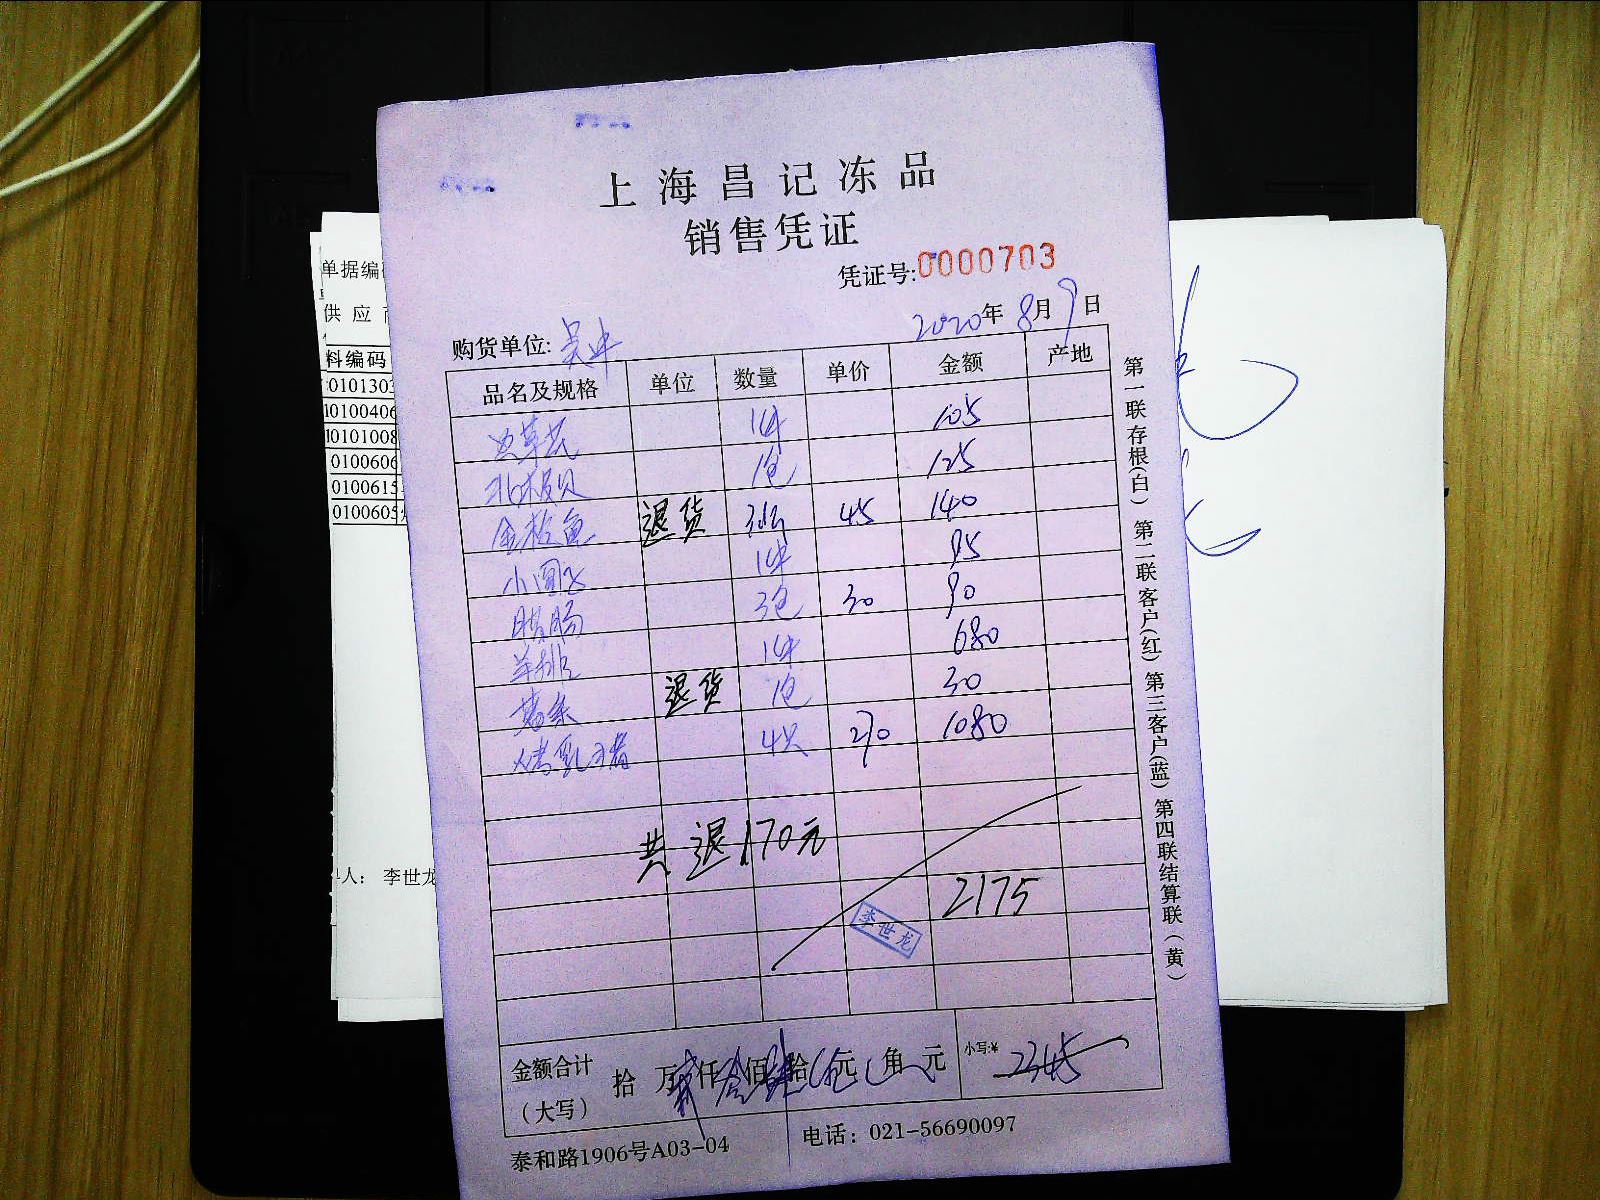 上海昌记冻品
销售凭证
凭证号:0000703
2020年8月9日
购货单位:
品名及规格 单位 数量 单价 金额 产地
虫草花 1件 105
北极贝 1包 125
金枪鱼 退货 45 140
1件 95
脆肠 3包 30 90
羊排 1件 680
薯条 退货 1包 30
烤乳猪 4只 270 1080
共退170元
2175
李世龙
金额合计 拾 万 仟 佰 拾 元 角 元 小写:¥ 2345
(大写)
泰和路1906号A03-04 电话：021-56690097
第一联存根(白) 第二联客户(红) 第三客户(蓝) 第四联结算联(黄)
单据编
供应
料编码
0101303
0100406
0101008
0100606
0100615
0100605
人： 李世龙